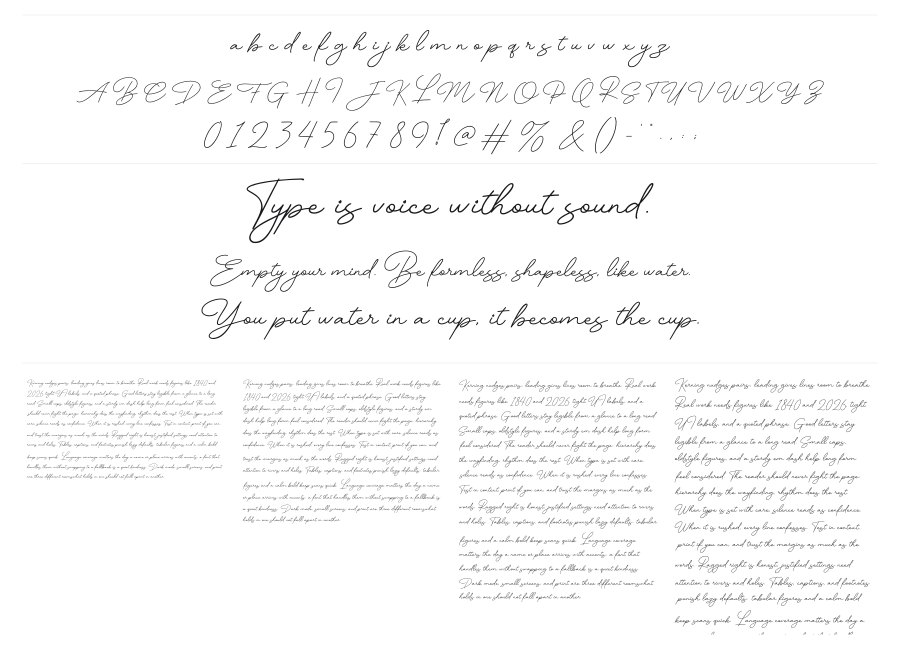 a b c d e f g h i j k l m n o p q r s t u v w x y z
A B C D E F G H I J K L M N O P Q R S T U V W X Y Z
0 1 2 3 4 5 6 7 8 9 ! @ # % & ( ) - " ' . , : ;
Type is voice without sound.
Empty your mind. Be formless, shapeless, like water.
You put water in a cup, it becomes the cup.
Kerning nudges pairs, leading gives lines room to breathe. Real work needs figures like 1840 and
2026, tight UI labels, and a quoted phrase. Good letters stay legible from a glance to a long
read. Small caps, oldstyle figures, and a sturdy em dash help long form feel considered. The reader
should never fight the page; hierarchy does the wayfinding, rhythm does the rest. When type is set with
care, silence reads as confidence. When it is rushed, every line confesses. Test in context, print if you can,
and trust the margins as much as the words. Ragged right is honest; justified settings need attention to
rivers and holes. Tables, captions, and footnotes punish lazy defaults; tabular figures and a calm bold
keep scans quick. Language coverage matters the day a name or place arrives with accents; a font that
handles them without swapping to a fallback is a quiet kindness. Dark mode, small screens, and print
are three different rooms; what holds in one should not fall apart in another.
Kerning nudges pairs, leading gives lines room to breathe. Real work needs figures like
1840 and 2026, tight UI labels, and a quoted phrase. Good letters stay
legible from a glance to a long read. Small caps, oldstyle figures, and a sturdy em
dash help long form feel considered. The reader should never fight the page; hierarchy
does the wayfinding, rhythm does the rest. When type is set with care, silence reads as
confidence. When it is rushed, every line confesses. Test in context, print if you can, and
trust the margins as much as the words. Ragged right is honest; justified settings need
attention to rivers and holes. Tables, captions, and footnotes punish lazy defaults; tabular
figures and a calm bold keep scans quick. Language coverage matters the day a name
or place arrives with accents; a font that handles them without swapping to a fallback is
a quiet kindness. Dark mode, small screens, and print are three different rooms; what
holds in one should not fall apart in another.
Kerning nudges pairs, leading gives lines room to breathe. Real work
needs figures like 1840 and 2026, tight UI labels, and a
quoted phrase. Good letters stay legible from a glance to a long read.
Small caps, oldstyle figures, and a sturdy em dash help long form
feel considered. The reader should never fight the page; hierarchy does
the wayfinding, rhythm does the rest. When type is set with care,
silence reads as confidence. When it is rushed, every line confesses.
Test in context, print if you can, and trust the margins as much as the
words. Ragged right is honest; justified settings need attention to rivers
and holes. Tables, captions, and footnotes punish lazy defaults; tabular
figures and a calm bold keep scans quick. Language coverage
matters the day a name or place arrives with accents; a font that
handles them without swapping to a fallback is a quiet kindness.
Dark mode, small screens, and print are three different rooms; what
holds in one should not fall apart in another.
Kerning nudges pairs, leading gives lines room to breathe.
Real work needs figures like 1840 and 2026, tight
UI labels, and a quoted phrase. Good letters stay
legible from a glance to a long read. Small caps,
oldstyle figures, and a sturdy em dash help long form
feel considered. The reader should never fight the page;
hierarchy does the wayfinding, rhythm does the rest.
When type is set with care, silence reads as confidence.
When it is rushed, every line confesses. Test in context,
print if you can, and trust the margins as much as the
words. Ragged right is honest; justified settings need
attention to rivers and holes. Tables, captions, and footnotes
punish lazy defaults; tabular figures and a calm bold
keep scans quick. Language coverage matters the day a